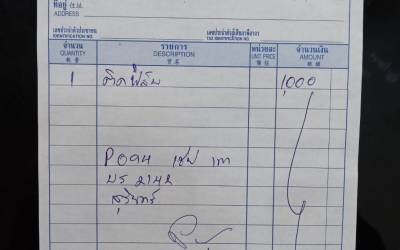 ที่อยู่
ADDRESS
เลขประจำตัวประชาชน เลขประจำตัวผู้เสียภาษีอากร
IDENTIFICATION NO. TAX IDENTIFICATION NO.
จำนวน รายการ หน่วยละ จำนวนเงิน
QUANTITY DESCRIPTION UNIT PRICE AMOUNT
1 ติดฟิล์ม 1,000
เชฟ เทา
บร 2142
สุรินทร์